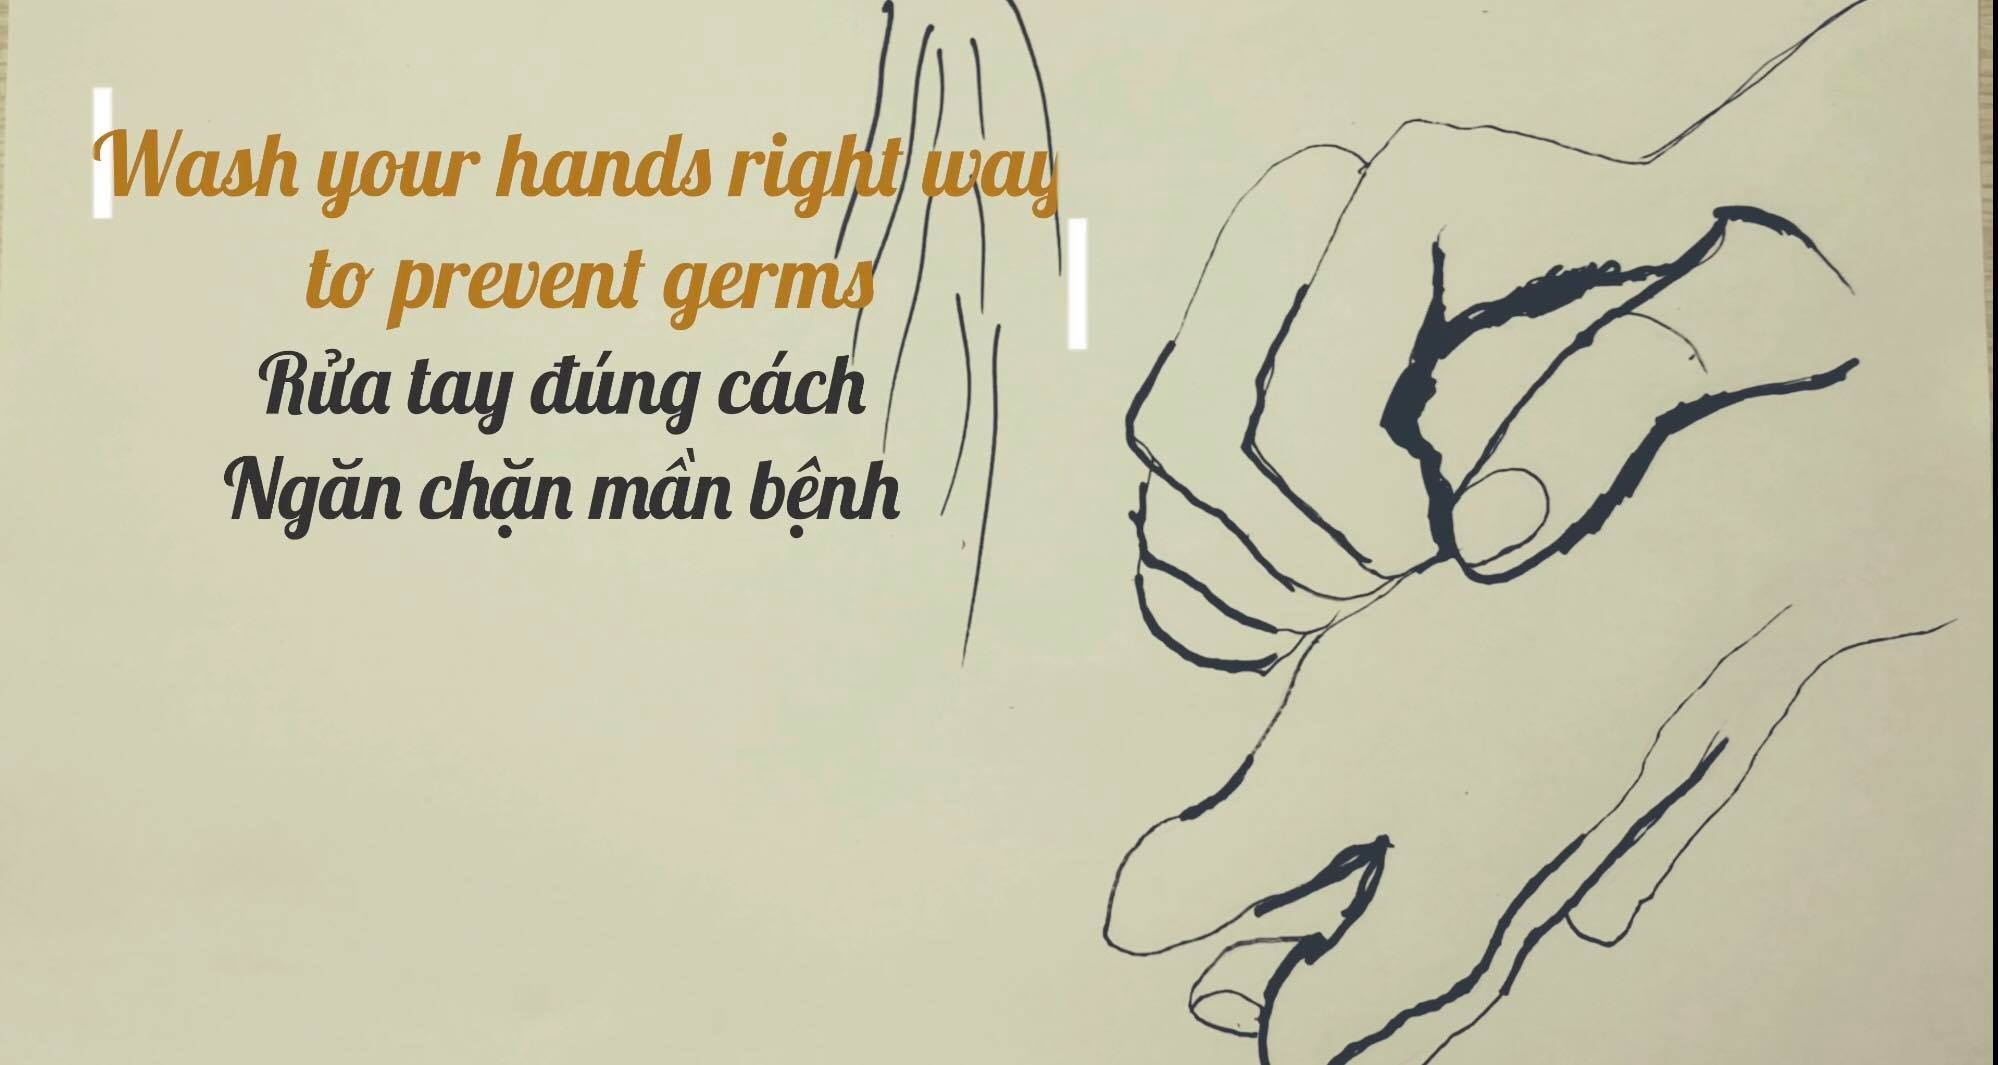 Wash your hands right way
to prevent germs
Rửa tay đúng cách
Ngăn chặn mần bệnh